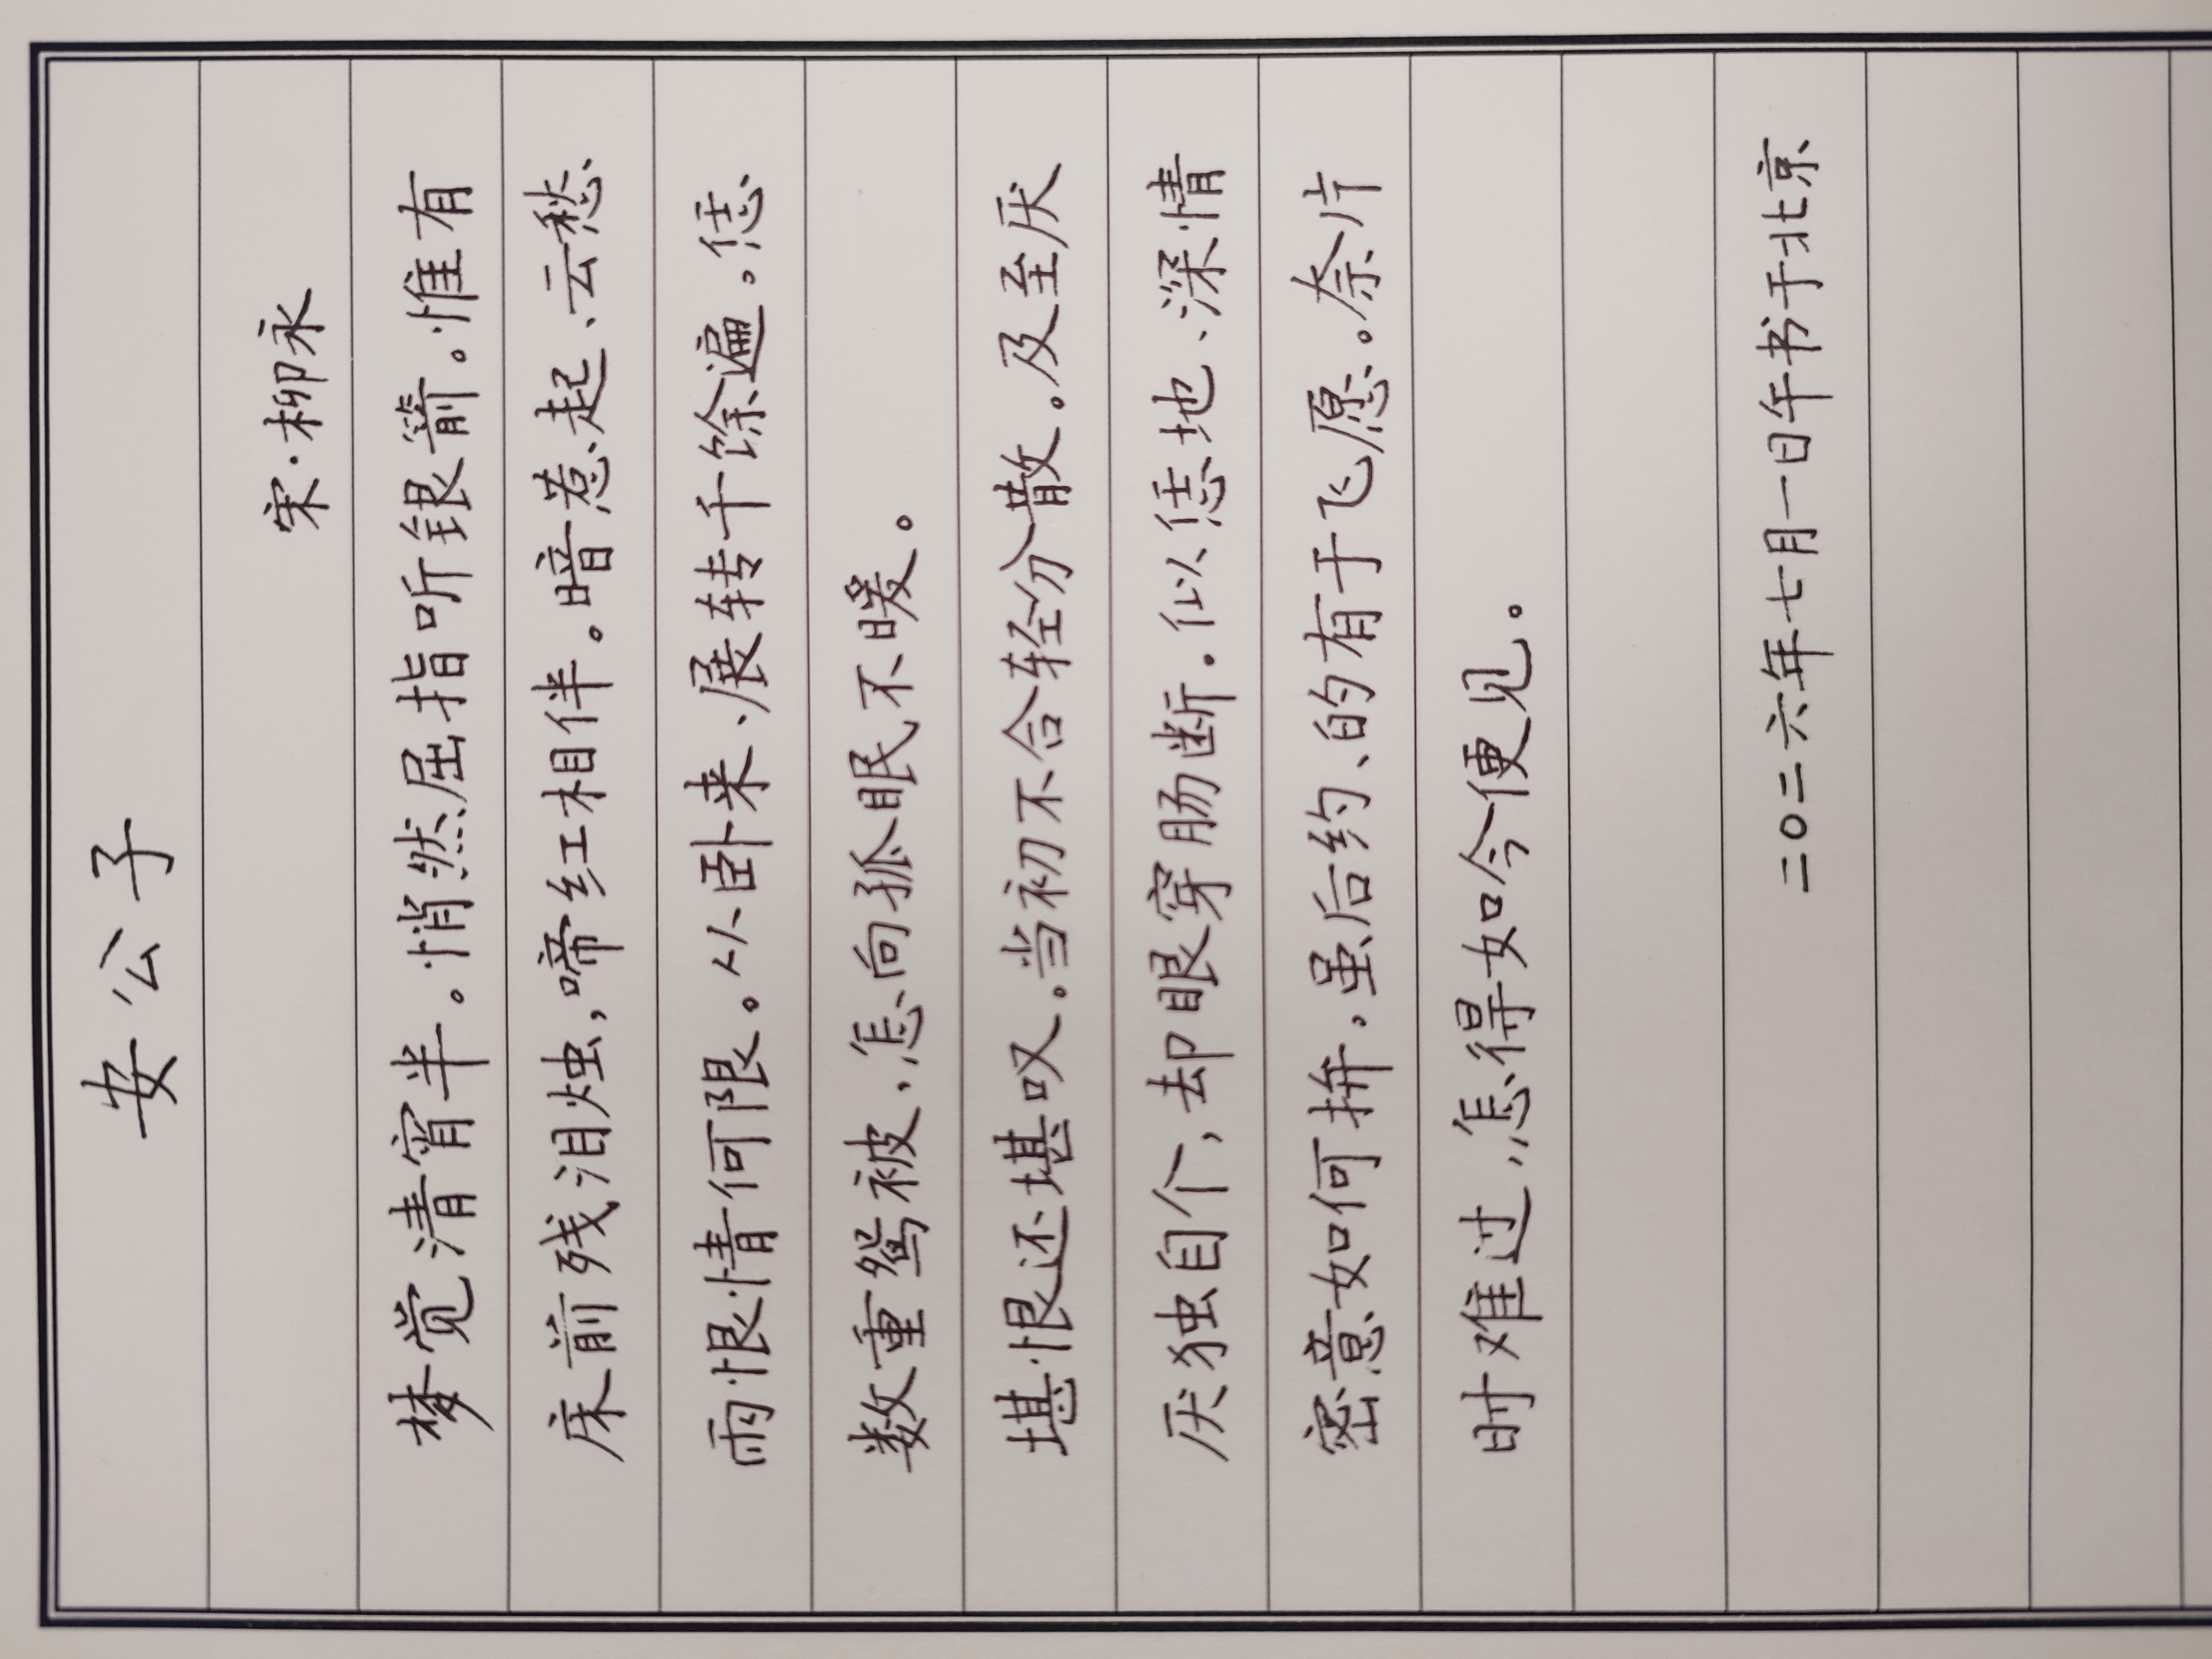 安公子
宋·柳永
梦觉清宵半。悄然屈指听银箭。惟有
床前残泪烛,啼红相伴。暗惹起、云愁
雨恨情何限。从卧来、展转千馀遍。恁
数重鸳被、怎向孤眠不暖。
堪恨还堪叹。当初不合轻分散。及至厌
厌独自个,却眼穿肠断。似恁地、深情
密意如何拚。虽后约、的有于飞愿。奈片
时难过,怎得如今便见。
二〇二六年七月一日午书于北京